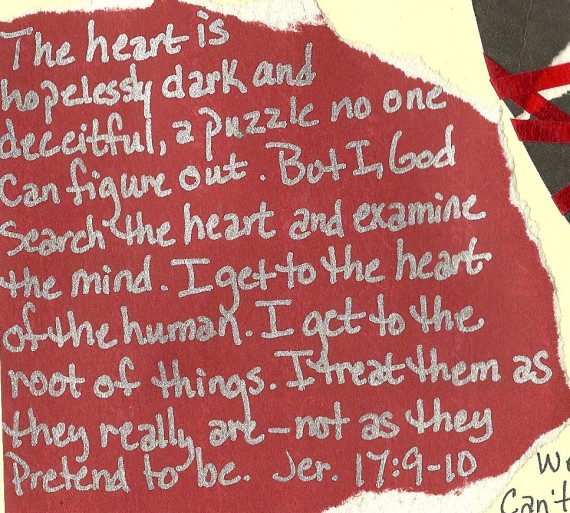 The heart is
hopelessly dark and
deceitful, a puzzle no one
can figure out. But I, God
Search the heart and examine
the mind. I get to the heart
of the human. I get to the
root of things. I treat them as
they really are - not as they
Pretend to be. Jer. 17:9-10
We
Can't